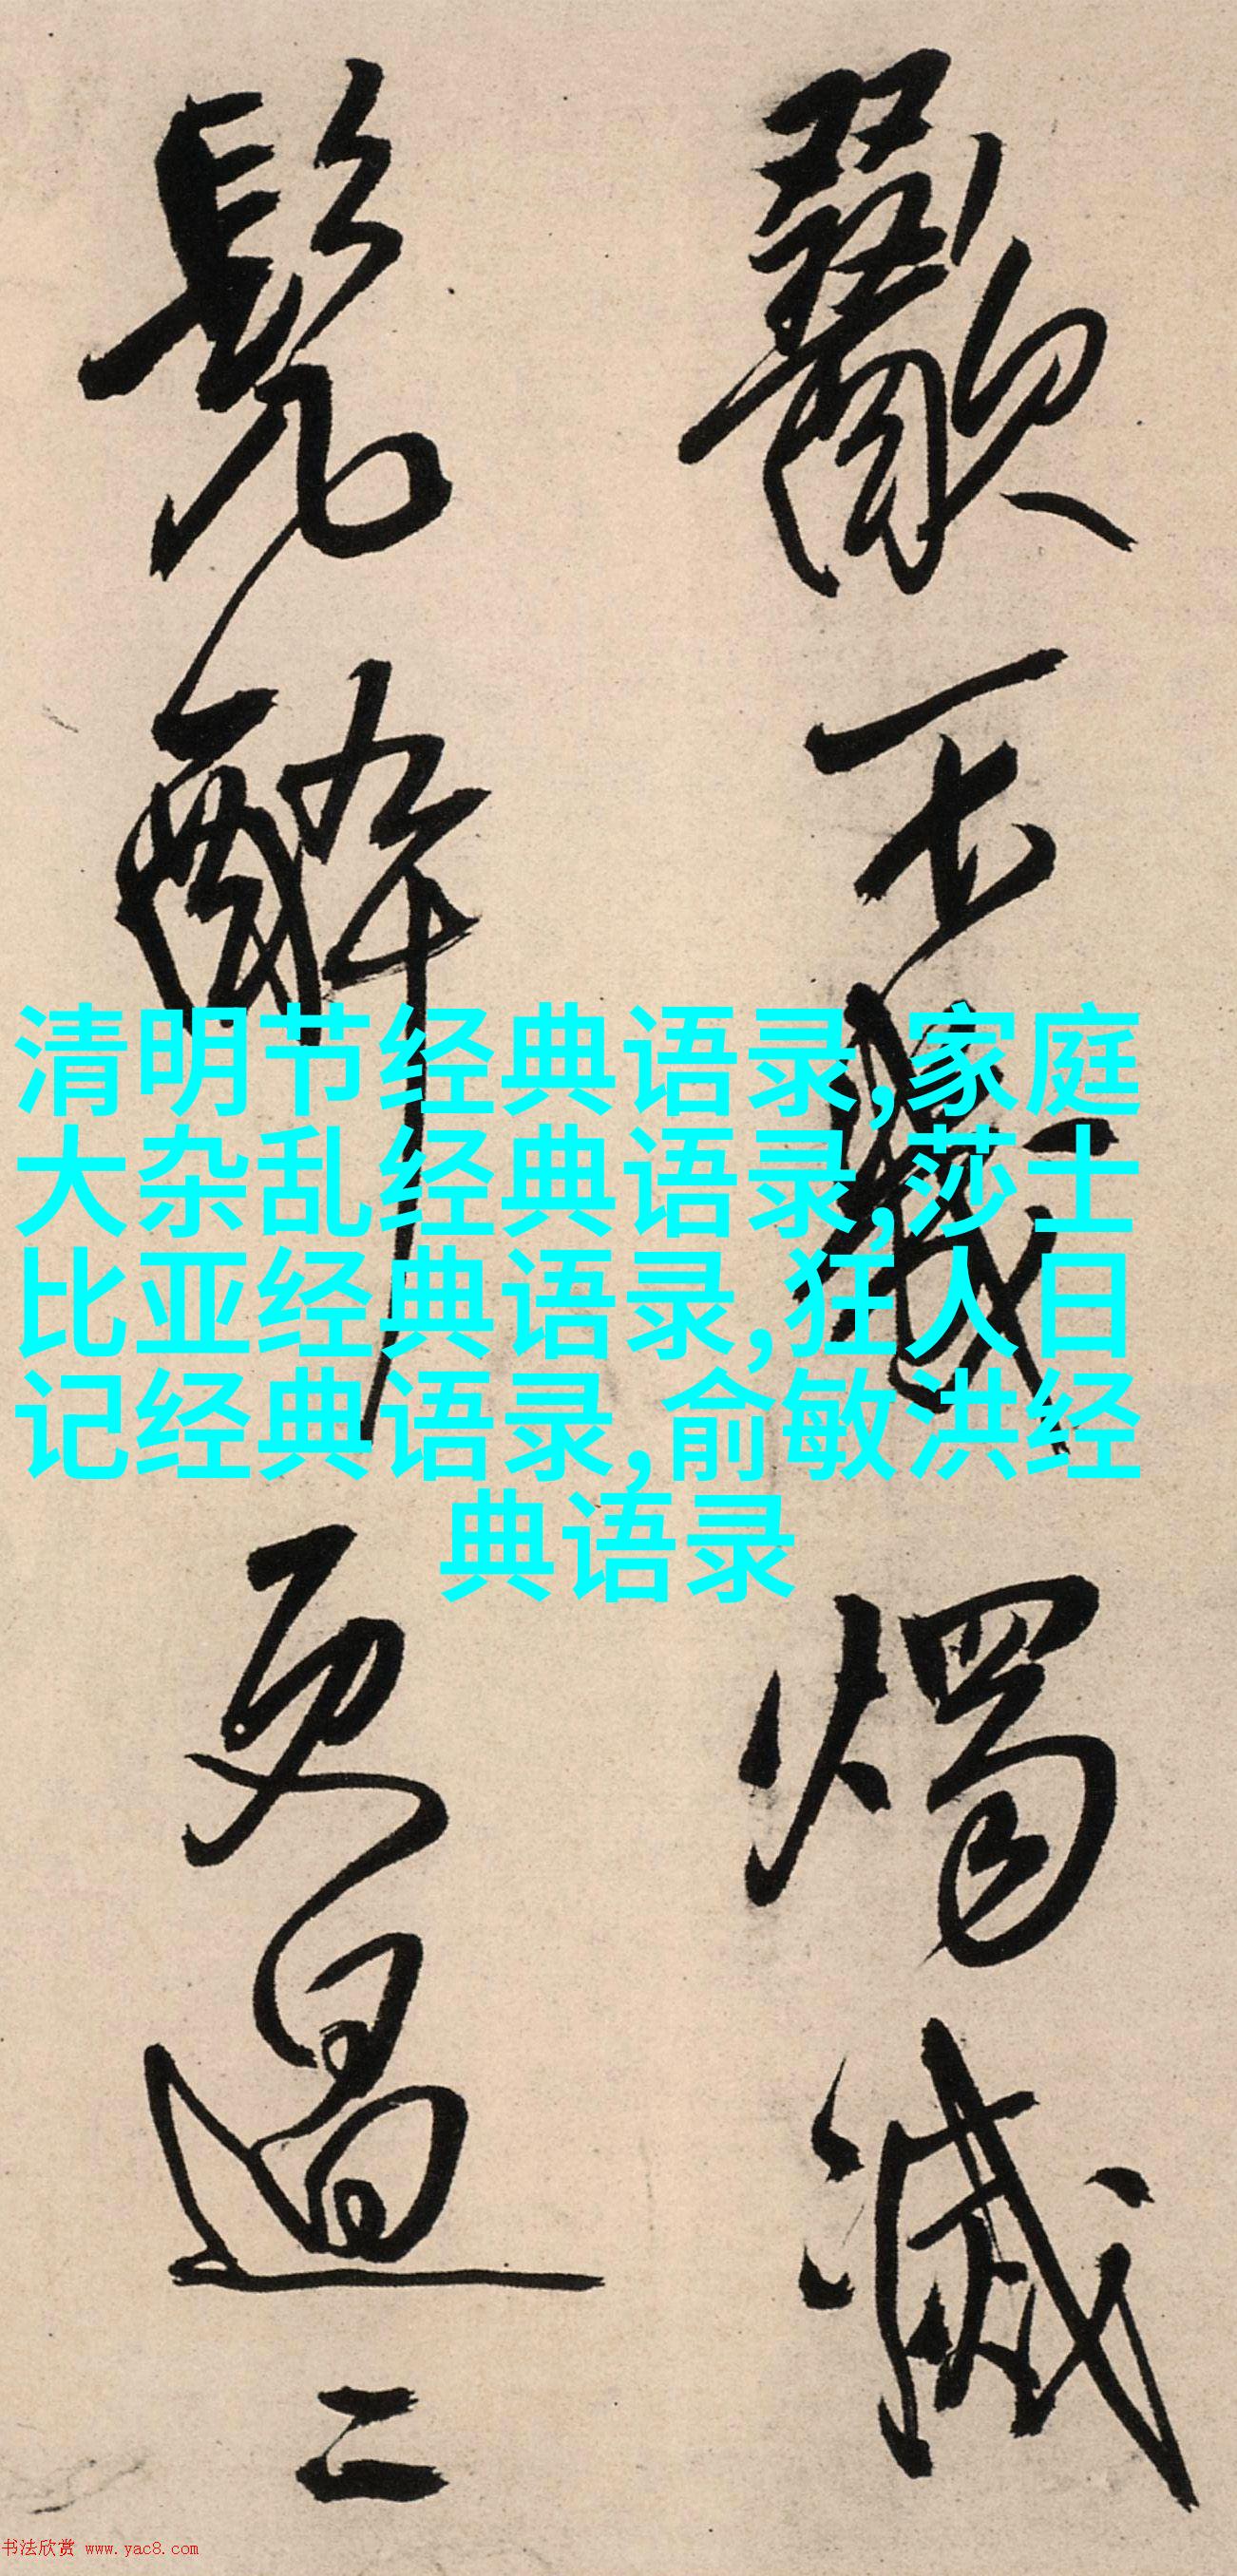 烛灭
鬓醉更过二
清明节经典语录,家庭
大杂乱经典语录,莎士
比亚经典语录,狂人日
记经典语录,俞敏洪经
典语录
书法欣赏 www.yac8.com